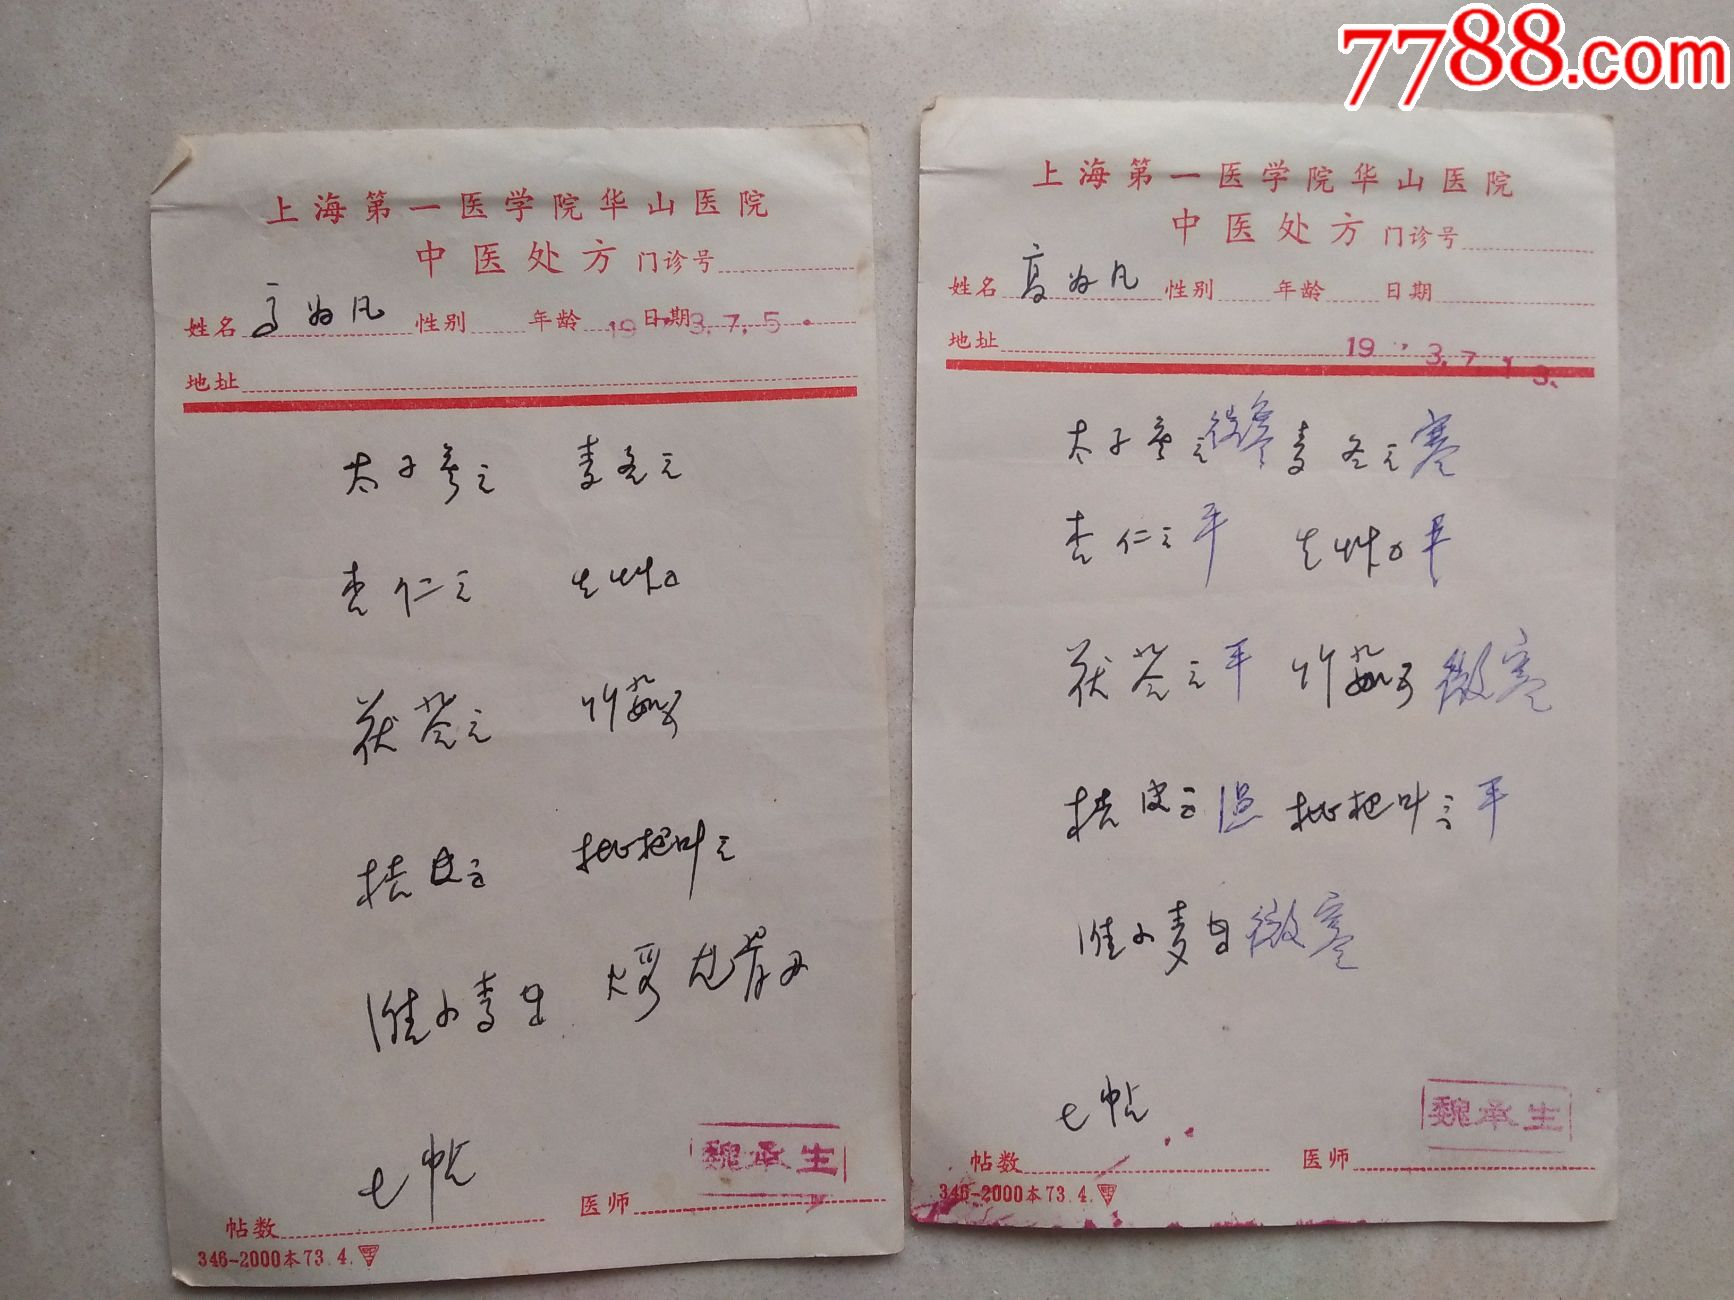 7788.com
上海第一医学院华山医院
中医处方 门诊号
姓名 高为凡 性别 年龄 日期 19 3.7.5.
地址
太子参 麦冬
杏仁 生草
茯苓 竹茹
桔皮 枇杷叶
淮小麦 煅龙骨
七帖
魏承生
帖数 医师
346-2000本73.4.
上海第一医学院华山医院
中医处方 门诊号
姓名 高为凡 性别 年龄 日期
地址 19 3.7.13.
太子参 微寒 麦冬 寒
杏仁 平 生草 平
茯苓 平 竹茹 微寒
桔皮 温 枇杷叶 平
淮小麦 微寒
七帖
魏承生
帖数 医师
346-2000本73.4.